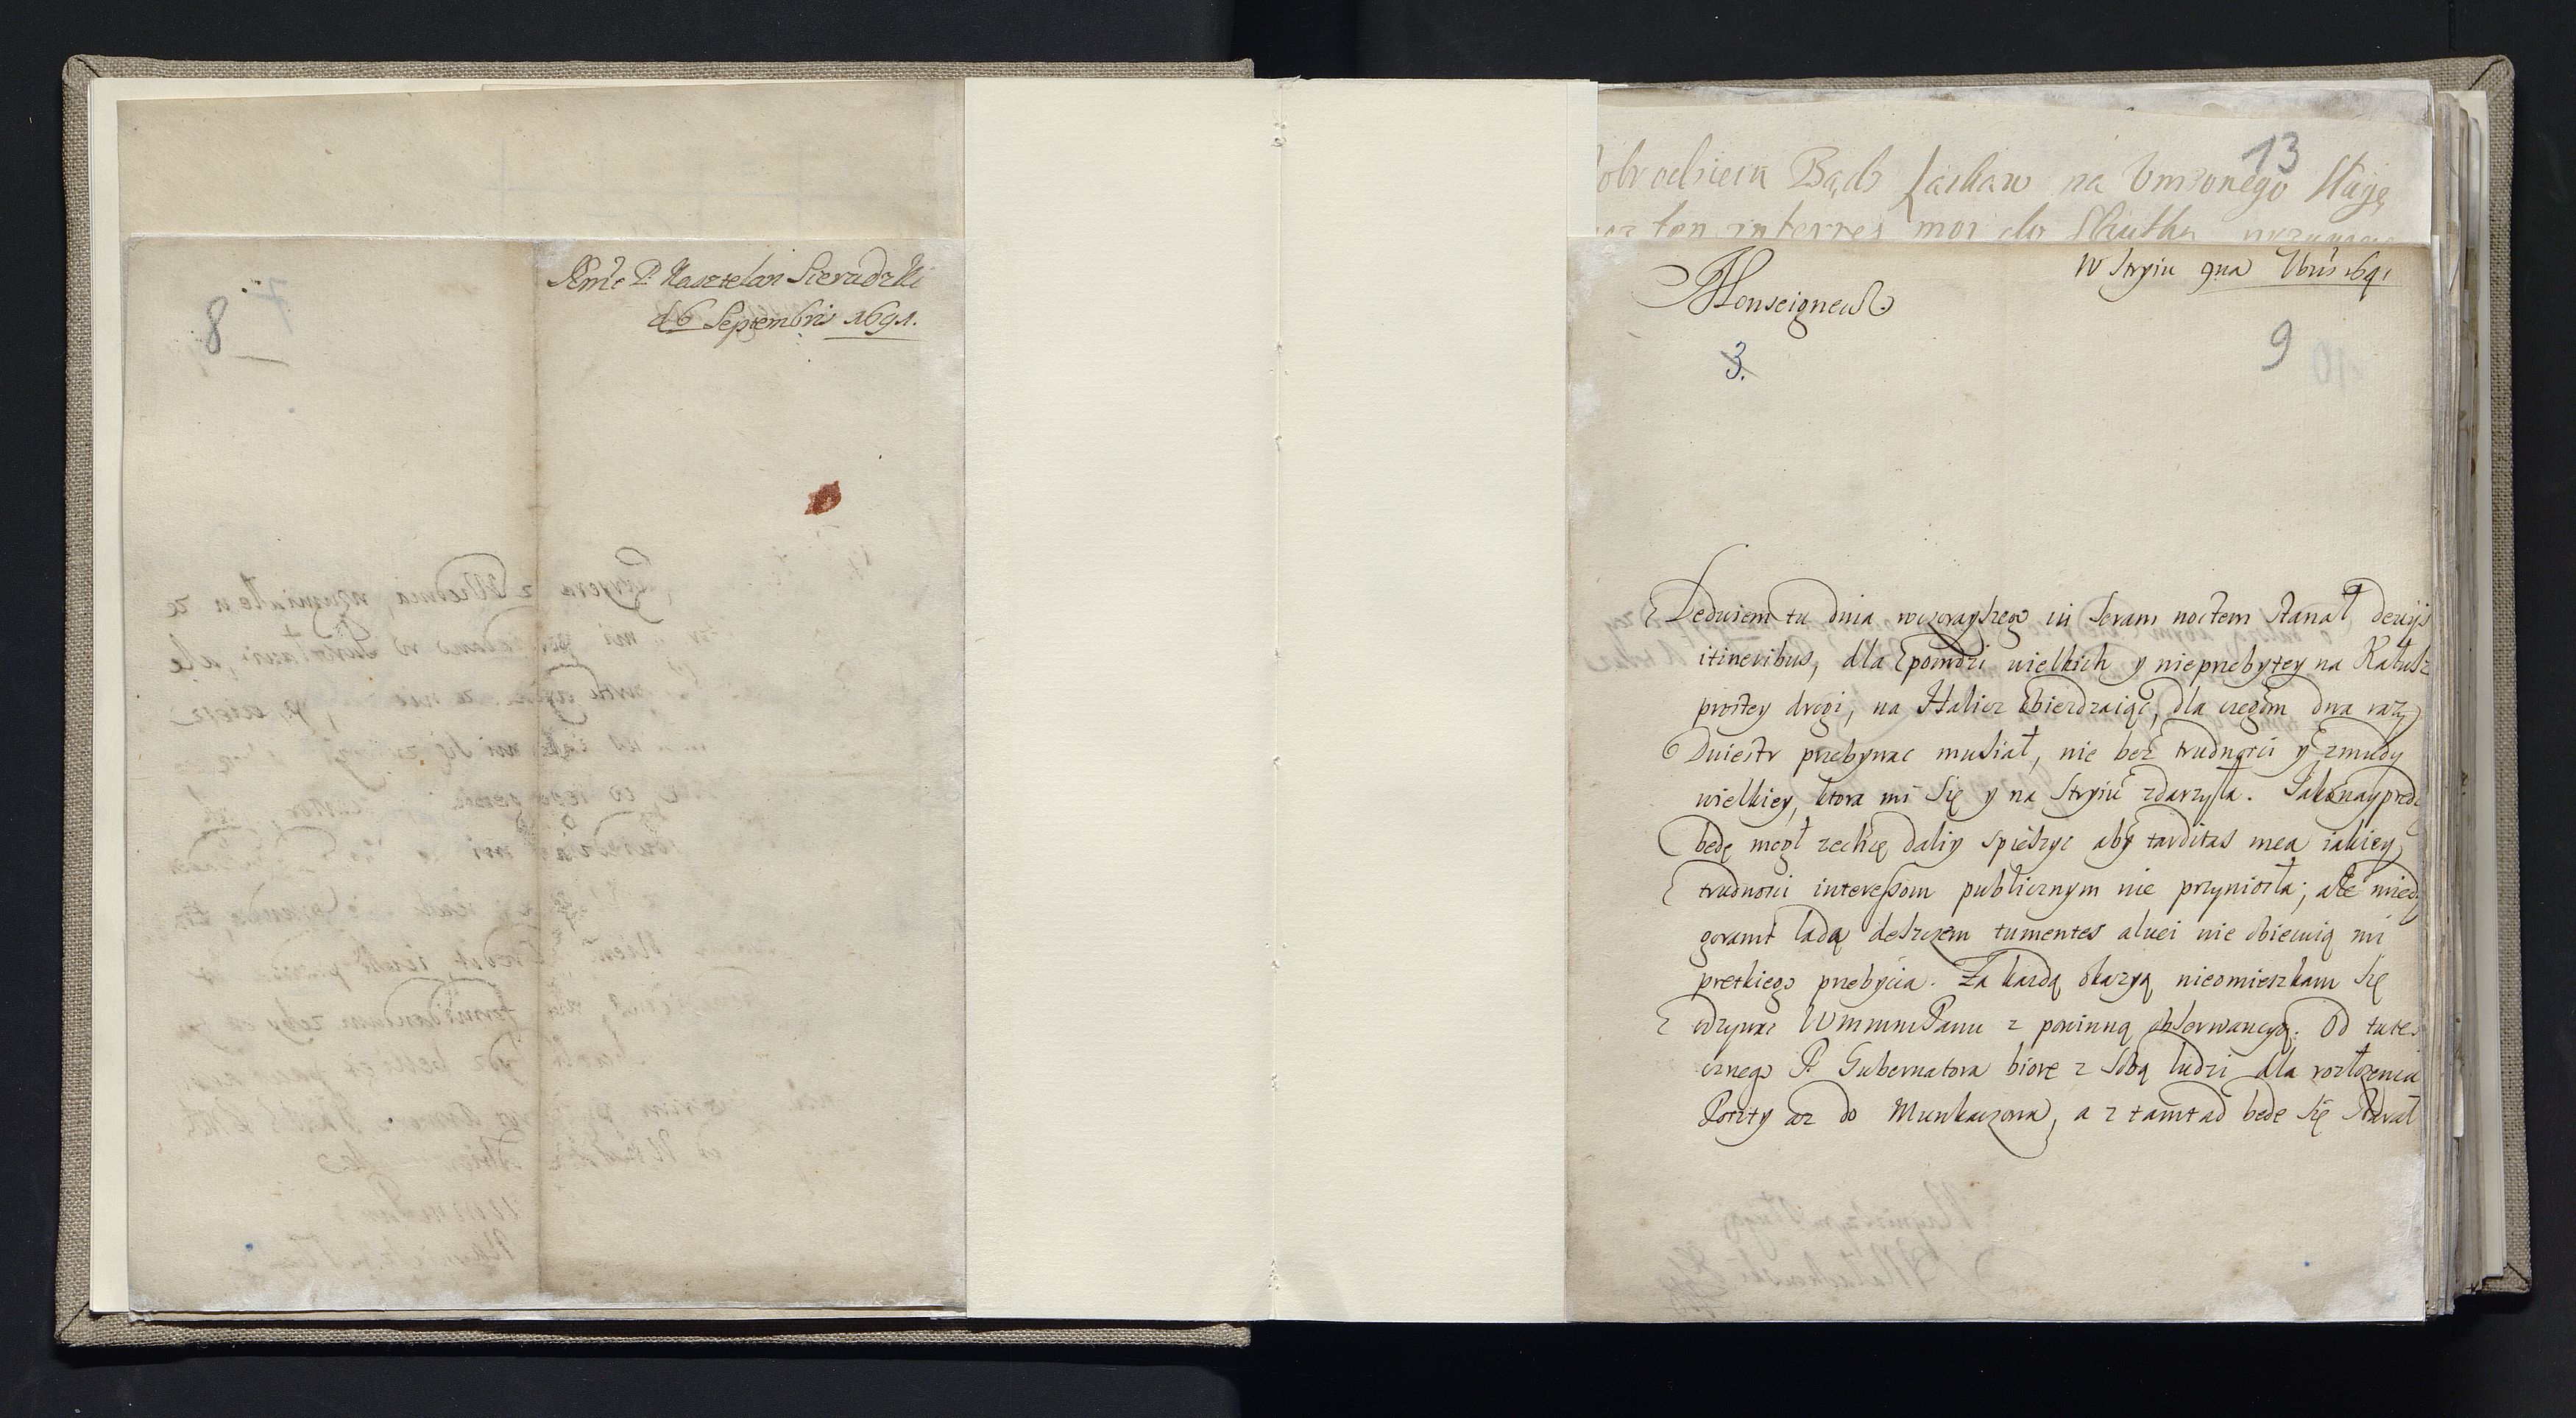 Jmć P. Kasztelan Sieradzki
d 6 Septembris 1691.
8
13
Bądz łaskaw na Umżonego Sługę
ten interres moi do Skutku
W Stryiu 9na 7bris 1691
Monseigneur
9
3.
Ledwiem tu dnia wczorayszego in seram noctem stanął devijs
itineribus, dla powodzi wielkich y nieprzebytey na Kałusz
prostey drogi, na Halicz obierdzaiąc, dla czegom dwa razy
Dniestr przebywac musiał, nie bez trudnosci y zmudy
wielkiey, ktora mi się y na Stryiu zdarzyła. Jako nayprędz
będę mogł zechcę daliy spieszyc aby tarditas mea iakiey
trudnosci interessom publicznym nie przyniosła; ale miedz
gorami ladą deszczem tumentes aluei nie obiecuią mi
prętkiego przebycia. Za kazdą okazyą nieomieszkam się
odzywac WmmmPanu z powinną obserwancyą. Od tutes
cznego P. Gubernatora biorę z sobą ludzi dla rozłozenia
Poczty az do Munkaczowa, a z tamtąd będę się starał